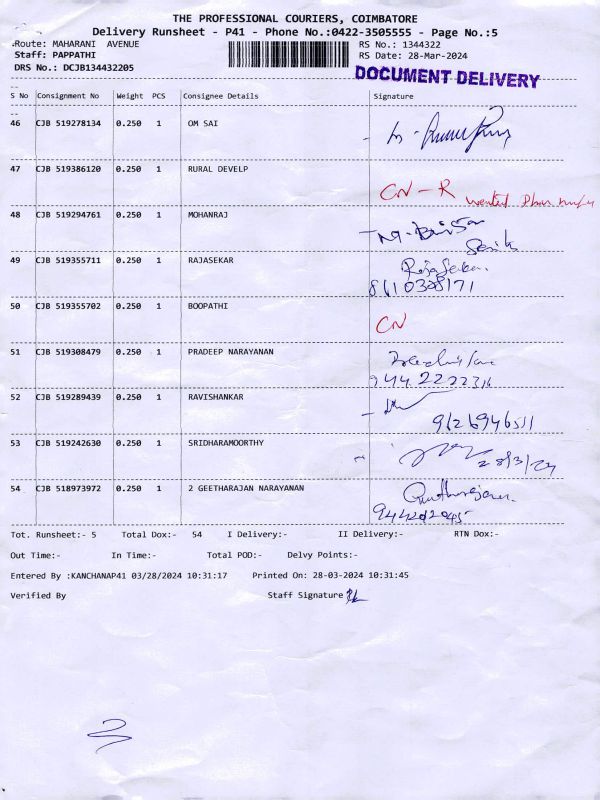 THE PROFESSIONAL COURIERS, COIMBATORE
Delivery Runsheet - P41 - Phone No.:0422-3505555 - Page No.:5
Route: MAHARANI AVENUE RS No.: 1344322
Staff: PAPPATHI RS Date: 28-Mar-2024
DRS No.: DCJB134432205 DOCUMENT DELIVERY
S No Consignment No Weight PCS Consignee Details Signature
46 CJB 519278134 0.250 1 OM SAI
47 CJB 519386120 0.250 1 RURAL DEVELP
CN - R wanted
48 CJB 519294761 0.250 1 MOHANRAJ
49 CJB 519355711 0.250 1 RAJASEKAR
Rajasekar
8610308171
50 CJB 519355702 0.250 1 BOOPATHI
CN
51 CJB 519308479 0.250 1 PRADEEP NARAYANAN
52 CJB 519289439 0.250 1 RAVISHANKAR
9126946511
53 CJB 519242630 0.250 1 SRIDHARAMOORTHY
28/3/24
54 CJB 518973972 0.250 1 2 GEETHARAJAN NARAYANAN
Tot. Runsheet:- 5 Total Dox:- 54 I Delivery:- II Delivery:- RTN Dox:-
Out Time:- In Time:- Total POD:- Delvy Points:-
Entered By :KANCHANAP41 03/28/2024 10:31:17 Printed On: 28-03-2024 10:31:45
Verified By Staff Signature